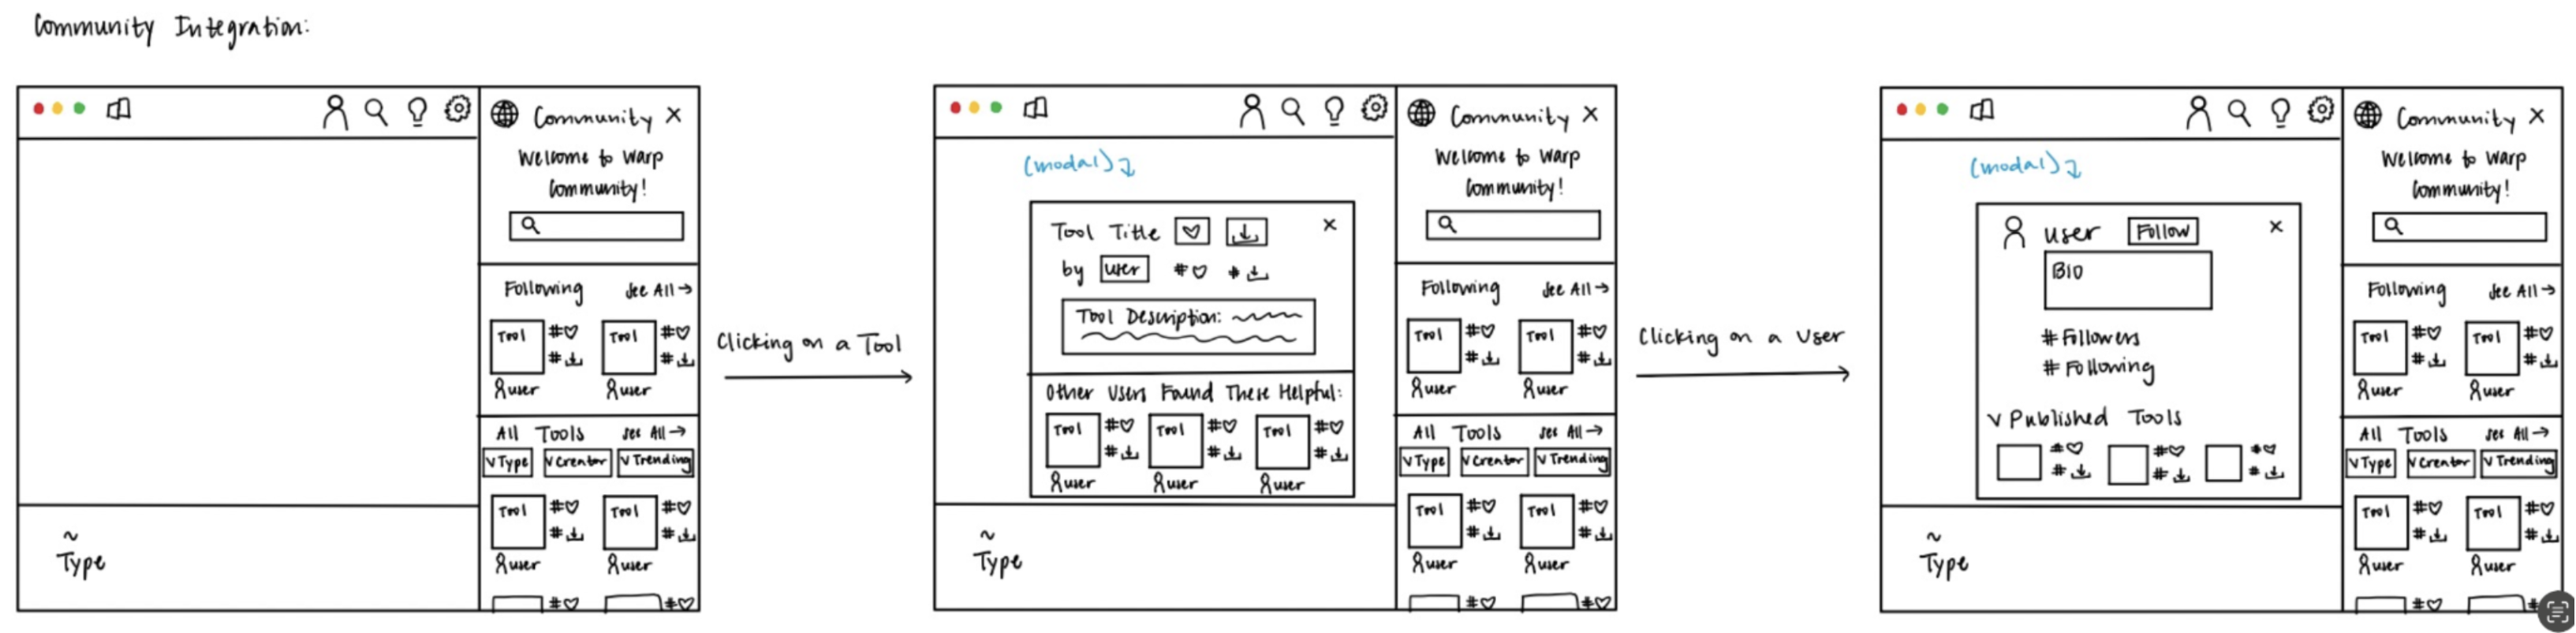 Community Integration:
Community X
Welcome to Warp
Community!
Following See All →
Tool #♡ Tool #♡
# #
user user
All Tools see All →
v Type v Creator v Trending
Tool #♡ Tool #♡
# #
user user
#♡ #♡
~
Type
Clicking on a Tool
(modal)
Tool Title ♡ X
by user #♡ #
Tool Description:
Other Users Found These Helpful:
Tool #♡ Tool #♡ Tool #♡
# # #
user user user
~
Type
Community X
Welcome to Warp
Community!
Following See All →
Tool #♡ Tool #♡
# #
user user
All Tools see All →
v Type v Creator v Trending
Tool #♡ Tool #♡
# #
user user
#♡ #♡
Clicking on a User
(modal)
user Follow X
Bio
# Followers
# Following
v Published Tools
#♡ #♡ #♡
# # #
~
Type
Community X
Welcome to Warp
Community!
Following See All →
Tool #♡ Tool #♡
# #
user user
All Tools see All →
v Type v Creator v Trending
Tool #♡ Tool #♡
# #
user user
#♡ #